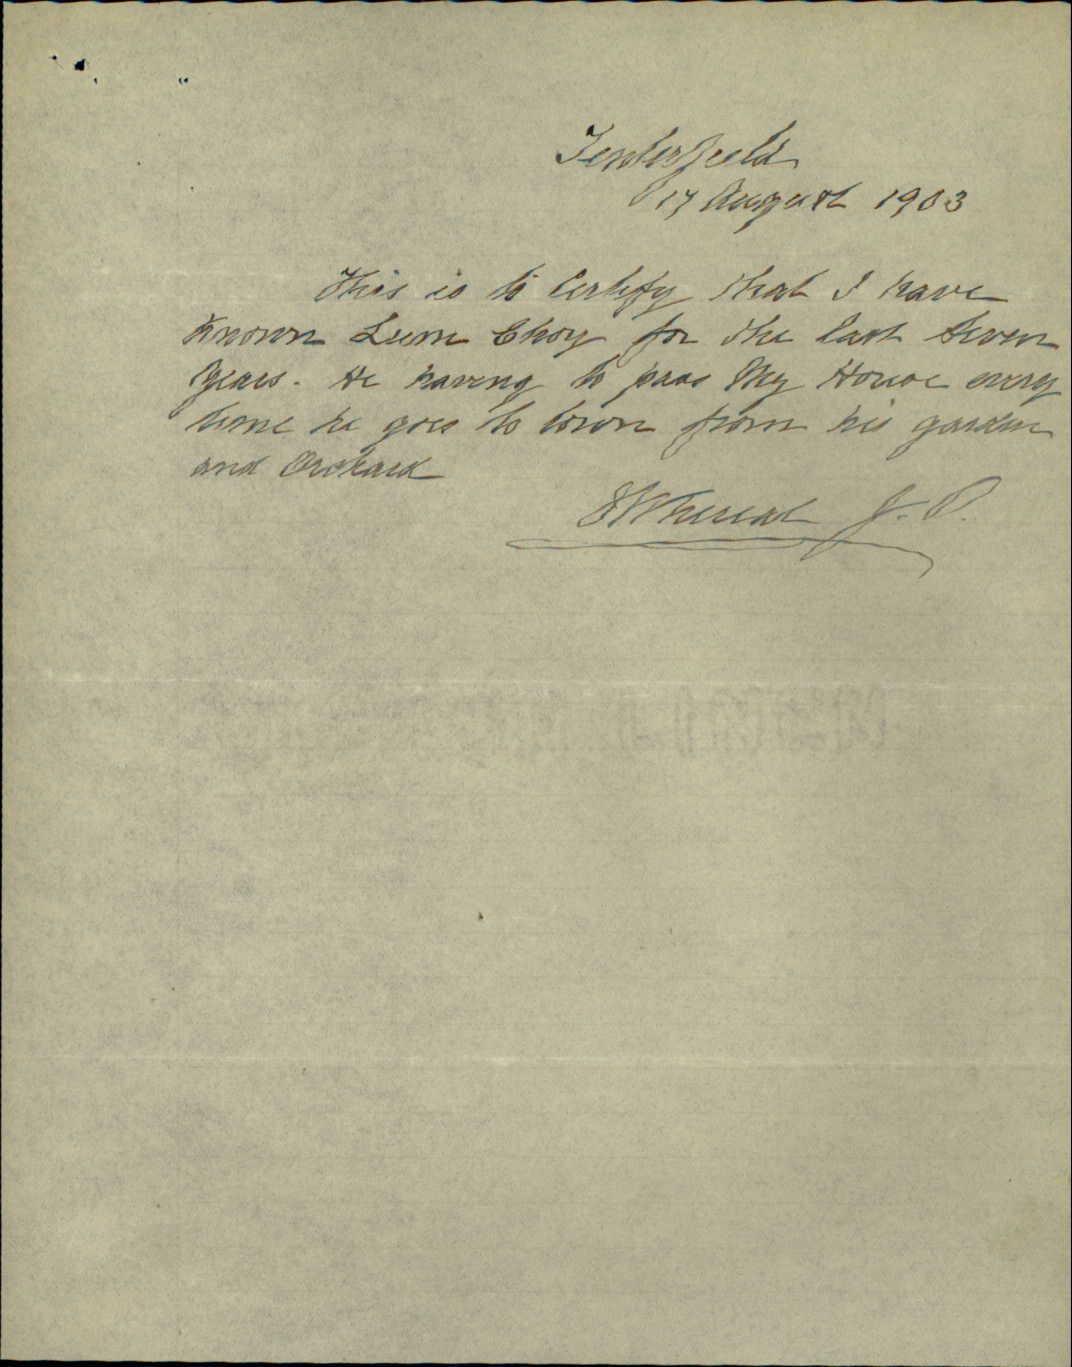 Tenterfield
17 August 1903
This is to Certify that I have
known Lum Choy for the last Seven
Years. He having to pass My House every
time he goes to town from his garden
and Orchard
Whereat J. P.